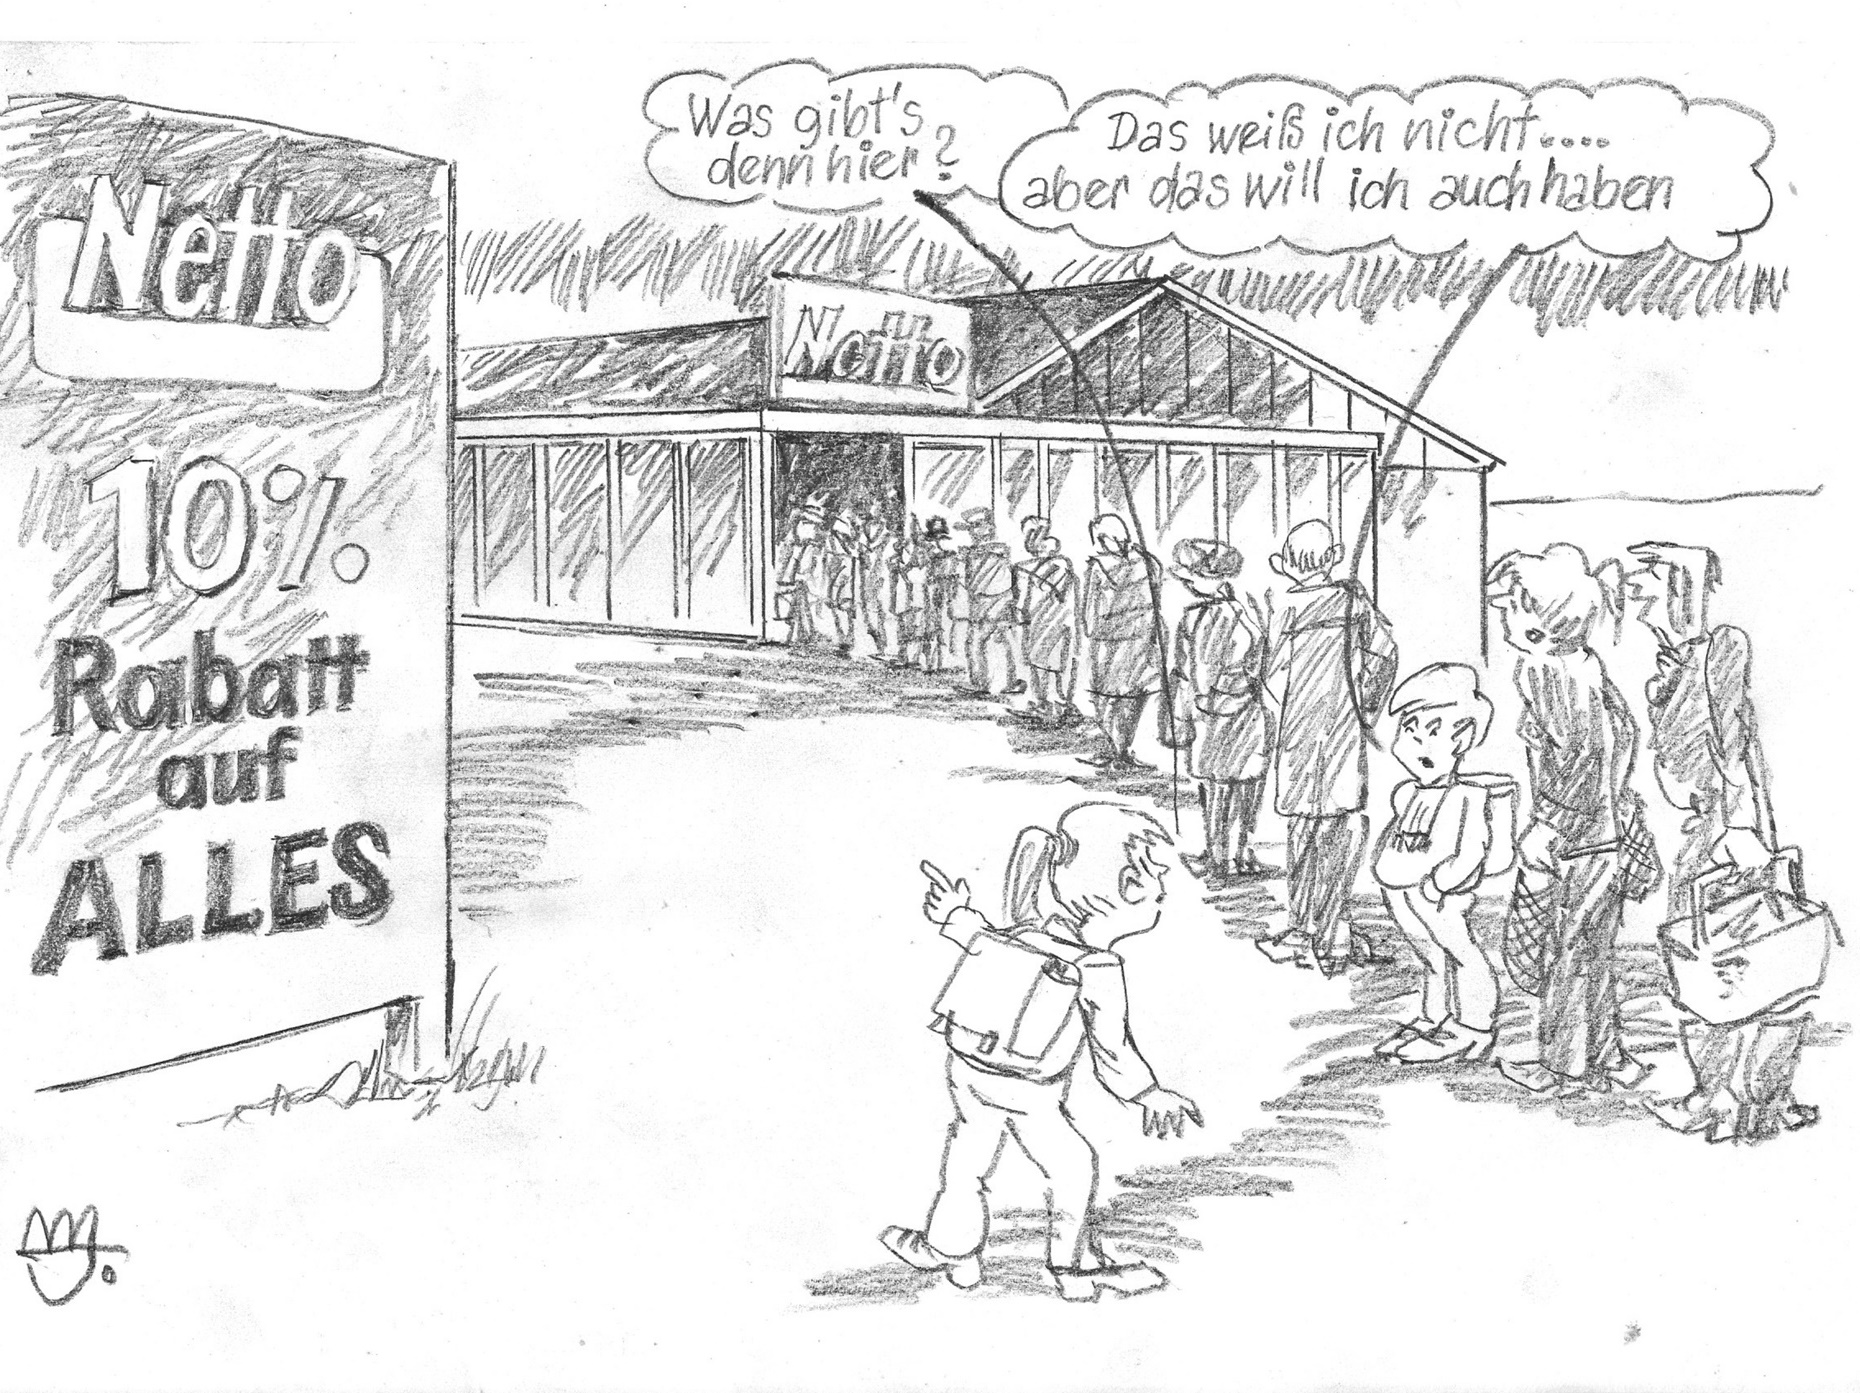 Was gibt's
denn hier?
Das weiß ich nicht....
aber das will ich auch haben
Netto
Netto
10%
Rabatt
auf
ALLES